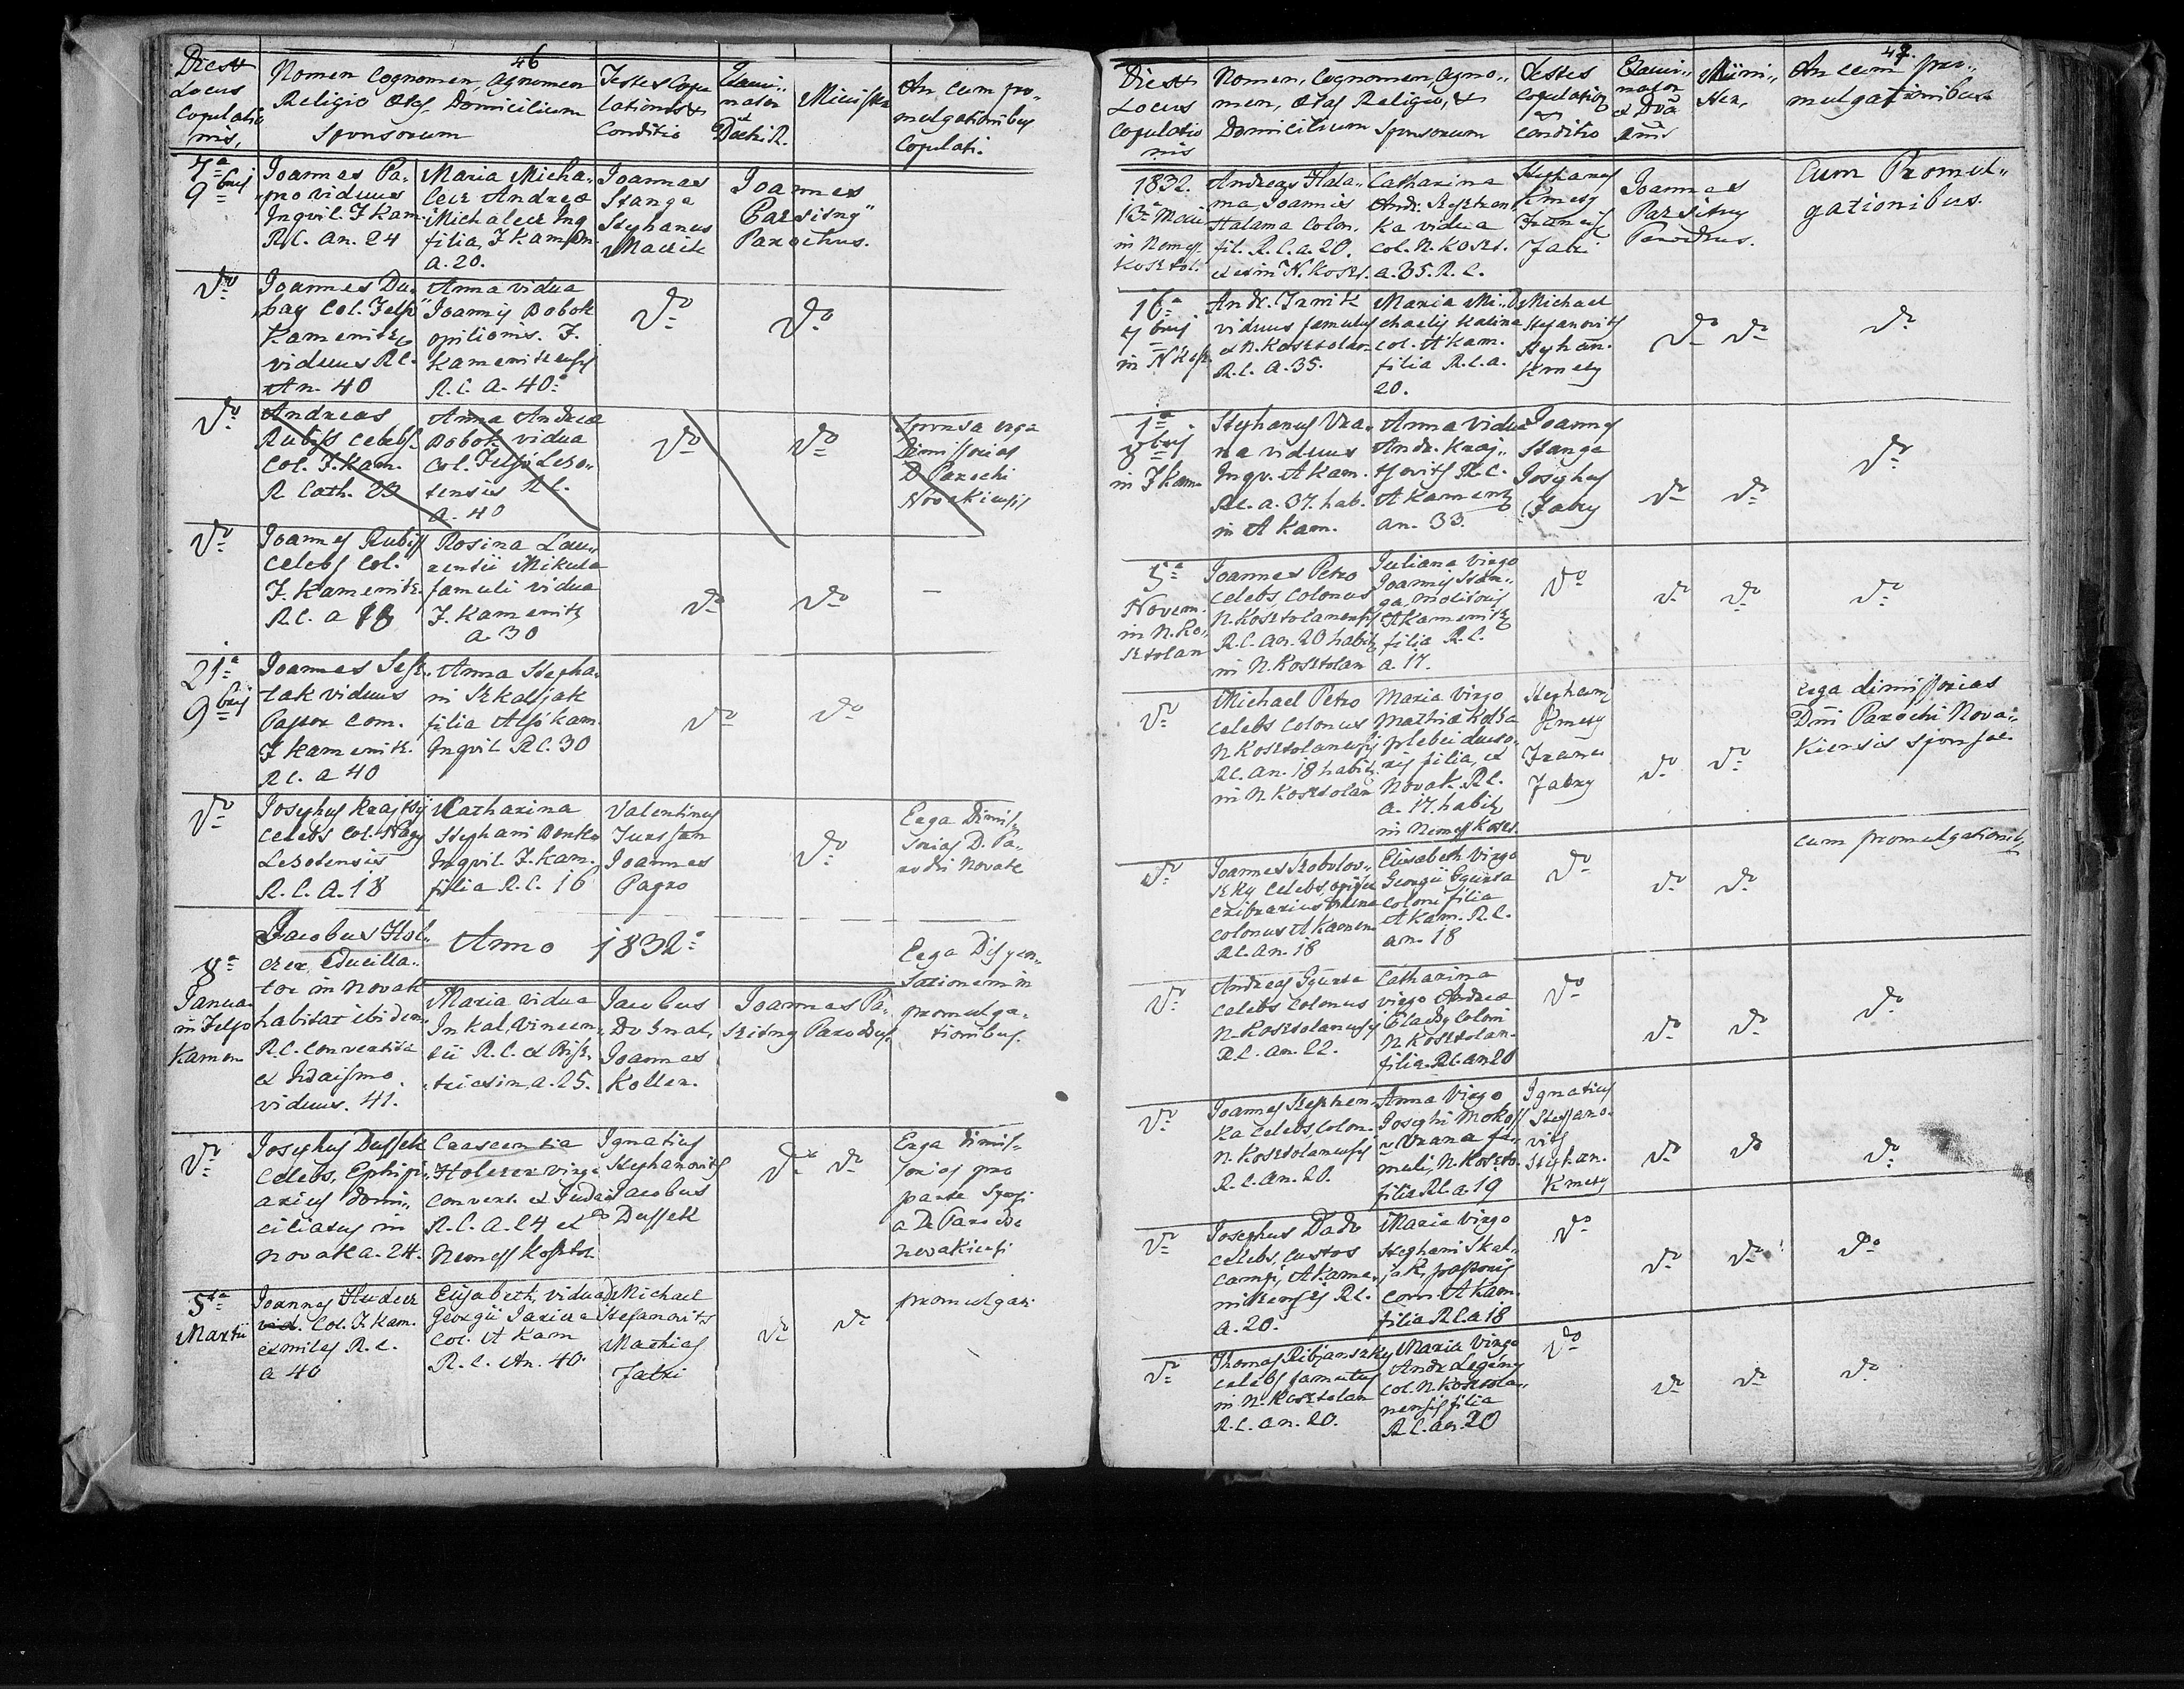 46
Dies et
Locus
Copulatio
nis,
Nomen Cognomen, Agnomen
Religio Ætas, Domicilium
Sponsorum
Testes Copu
lationis &
Conditio
Exami..
nator
Minister
An cum pro..
mulgationibus
Copulati.
7a
9bris
Joannes Pa..
pro viduus
Inqvil. F Kam.
R.C. an. 24
Maria Micha..
lecz Andreæ
Michalecz Inq
filia, F Kam
a. 20.
Joannes
Stanga
Stephanus
Joannes
Parsitny
Parochus.
do
Joannes Du..
bay Col. Felső
Kamenitz
viduus R.C.
An. 40
Anna vidua
Joannis Bobok
opilionis. F.
Kamenitzensis
R.C. A. 40.
do
do
do
Andreas
Rubiss Celebs
Col. F. Kam.
R Cath. 23
Anna Andreæ
Bobok vidua
Col. Felső Leho..
tensis R.C.
a. 40
do
do
Sponsa erga
Dimissorias
D Parochi
Novakiensis
do
Joannes Rubiss
Celebs Col.
F. Kamenitz.
R.C. a 18
Rosina Lau..
rentii Mikula
famuli vidua
F. Kamenitz
a. 30
do
do
–
21a
9bris
Joannes
tak viduus
Pastor Com.
F Kamenitz.
R.C. a 40
Anna Stepha..
ni Szkaljak
filia Alsó Kam.
Inqvil. R.C. 30
do
do
do
Josephus Krajtsi
Celebs Col. Nagy
Lehotensis
R.C. A. 18
Catharina
Stephani Benko
Inqvil. F. Kam.
filia R.C. 16
Valentinus
Joannes
Papro
do
Erga Dimis..
sorias D. Pa..
rochi Novak
Anno 1832.
8a
Janua.
in Felső
Kamen
Jacobus Hol..
czer, Educilla..
tor in Novak
habitat ibidem.
R.C. Conversus
ex Judaismo
viduus. 41.
Maria vidua
R.C. ex
a. 25.
Jacobus
Joannes
Koller.
Joannes Pa..
rsitny Parochus.
Erga Dispen..
sationem in
promulga..
tionibus.
do
Josephus Dussek
Celebs, Ephipi..
arius domi..
ciliatus in
Novak a. 24.
Crescentia
Holczer virgo
convers. ex Judais
R.C. A. 24 ex
Nemess Kosztol.
Ignatius
Stephanovits
Jacobus
Dussek
do do
Erga dimis..
sorias pro
parte Sponsi
a D. Parocho
Novakiensi
5ta
Martii
Joannes Hudecz
vid. Col. F. Kam.
exmiles R.C.
a 40
Elisabeth vidua
Georgii
Col. A Kam
R.C. An. 40.
Michael
Stefanovits
Mathias
Fabri
do
do
promulgati
47.
Dies et
Locus
Copulatio
nis
Nomen, Cognomen, Agno..
men, Ætas Religio, &
Domicilium Sponsorum
Testes
Copulationis
&
Conditio
Exami..
nator
Mini..
ster,
An cum pro..
mulgationibus
1832.
Maii
in Nemes
Kosztol.
Andreas Hala..
ma, Joannis
Halama Colon.
fil. R.C. a. 20.
ex N. Koszt.
Catharina
ka vidua
Col. N. Koszt.
a. 35. R.C.
Stephanus
Kmety
Francisc
Fabri
Joannes
Parsitny
Parochus.
Cum Promul..
gationibus.
16a
7bris
in N Koszt.
viduus famulus
ex N. Kosztolan
R.C. A. 35.
Maria Mi..
chaelis Kalina
Col. A Kam.
filia R.C. a.
20.
Michael
Stefanovits
Stephan.
Kmety
do do
do
1a
8bris
in F Kam.
Stephanus Vra..
na viduus
Inqv. A Kam.
R.C. a. 37. hab.
in A Kam.
Anna vidua
Andr. Kraj..
tsovits R.C.
A Kamenitz
an. 33.
Joannes
Stanga
Josephus
Fabry
do do
do
5a
Novem.
in N. Ko..
sztolan
Joannes Petro
Celebs, Colonus
N. Kosztolanensis
R.C. An. 20 habit.
in N. Kosztolan
Juliana Virgo
Joannis Stan..
ga, Molitoris
A Kamenitz
filia R.C.
a. 17.
do
do do
do
do
Michael Petro
Celebs Colonus
N. Kosztolanensis
R.C. An. 18 habit.
in N. Kosztolan
Maria Virgo
Mathiæ Kossa
filia, ex
Novak. R.C.
a. 17. habit.
in Nemes Koszt.
Stephan
Kmety
Franc
Fabry
do do
erga dimissorias
Dni Parochi Nova..
kiensis sponsæ
do
Celebs,
colonus A Kamen
R.C. An. 18
Elisabeth Virgo
Georgii Gyurza
Coloni filia
A Kam. R.C.
an. 18
do
do do
cum promulgationib
do
Andreas Gyurza
Celebs Colonus
N. Kosztolanensis
R.C. An. 22.
Catharina
virgo Andreæ
Coloni
N Kosztolan.
filia R.C. an 20
do
do do
do
do
Joannes
ka Celebs, Colon.
N. Kosztolanensis
R.C. An. 20.
Anna Virgo
Josephi Mokoss
v Vrana fa..
muli, N. Koszto.
filia R.C. a. 19
Ignatius
Steffano..
vits
Stephan.
Kmety
do do
do
do
Josephus Dado
Celebs, Custos
Campi, A Kame..
nitzensis R.C.
a. 20.
Maria Virgo
Stephani Skal..
jak, pastoris
com. A Kam.
filia R.C. a 18
do
do do
do
do
Thomas Ribjanszky
Celebs famulus
in N. Kosztolan
R.C. An. 20.
Maria Virgo
Andr. Legény
Col. N. Kosztola..
nensis filia
R.C. an. 20
do
do do
do